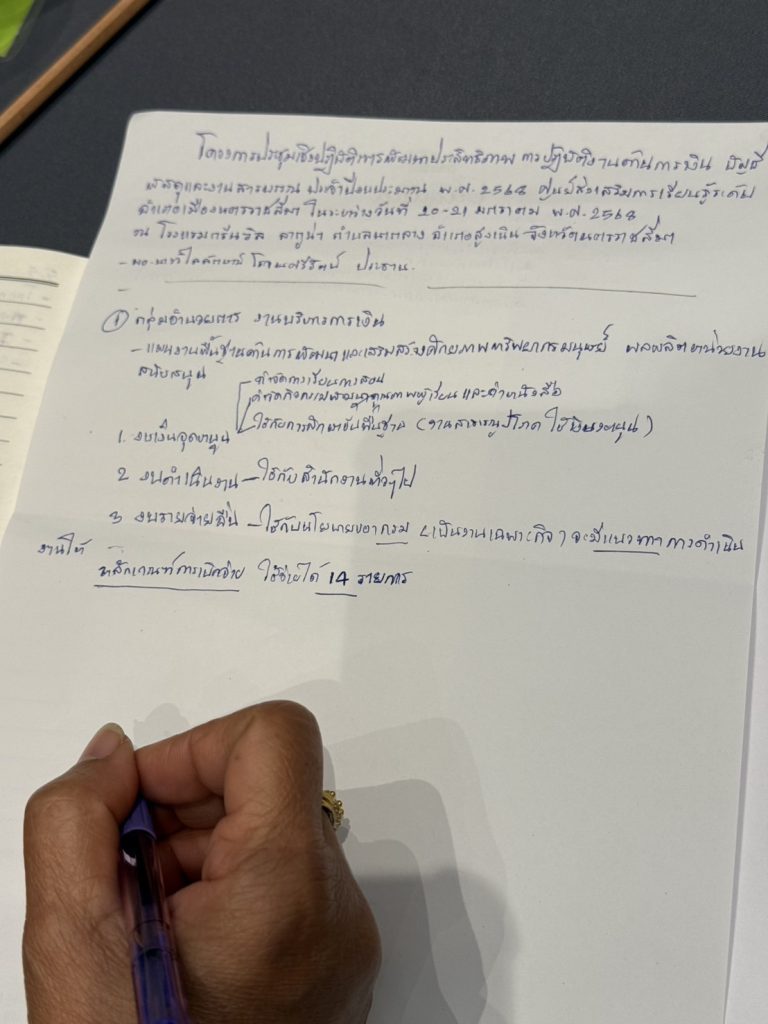 โครงการประชุมเชิงปฏิบัติการพัฒนาประสิทธิภาพ การปฏิบัติงานด้านการเงิน บัญชี
พัสดุและงานสารบรรณ ประจำปีงบประมาณ พ.ศ. 2568 ศูนย์ส่งเสริมการเรียนรู้ระดับ
อำเภอเมืองนครราชสีมา ในระหว่างวันที่ 20-21 มกราคม พ.ศ. 2568
ณ โรงแรมกรีนวิล ลากูน่า ตำบลนากลาง อำเภอสูงเนิน จังหวัดนครราชสีมา
ประธาน
① กลุ่มอำนวยการ งานบริหารการเงิน
- แผนงานพื้นฐานด้านการพัฒนาและเสริมสร้างศักยภาพทรัพยากรมนุษย์ ผลผลิตหน่วยงาน
สนับสนุน
ค่าจัดการเรียนการสอน
ค่าจัดกิจกรรมพัฒนาคุณภาพผู้เรียน และค่าหนังสือ
1. งบเงินอุดหนุน ใช้กับการศึกษาขั้นพื้นฐาน (งานสาธารณูปโภค
2 งบดำเนินงาน - ใช้กับสำนักงานทั่วๆไป
3 งบรายจ่ายอื่น - ใช้กับนโยบายของกรม (เป็นงานเฉพาะกิจ) จะมีแนวทางการดำเนิน
งานให้
หลักเกณฑ์การเบิกจ่าย ใช้จ่ายได้ 14 รายการ